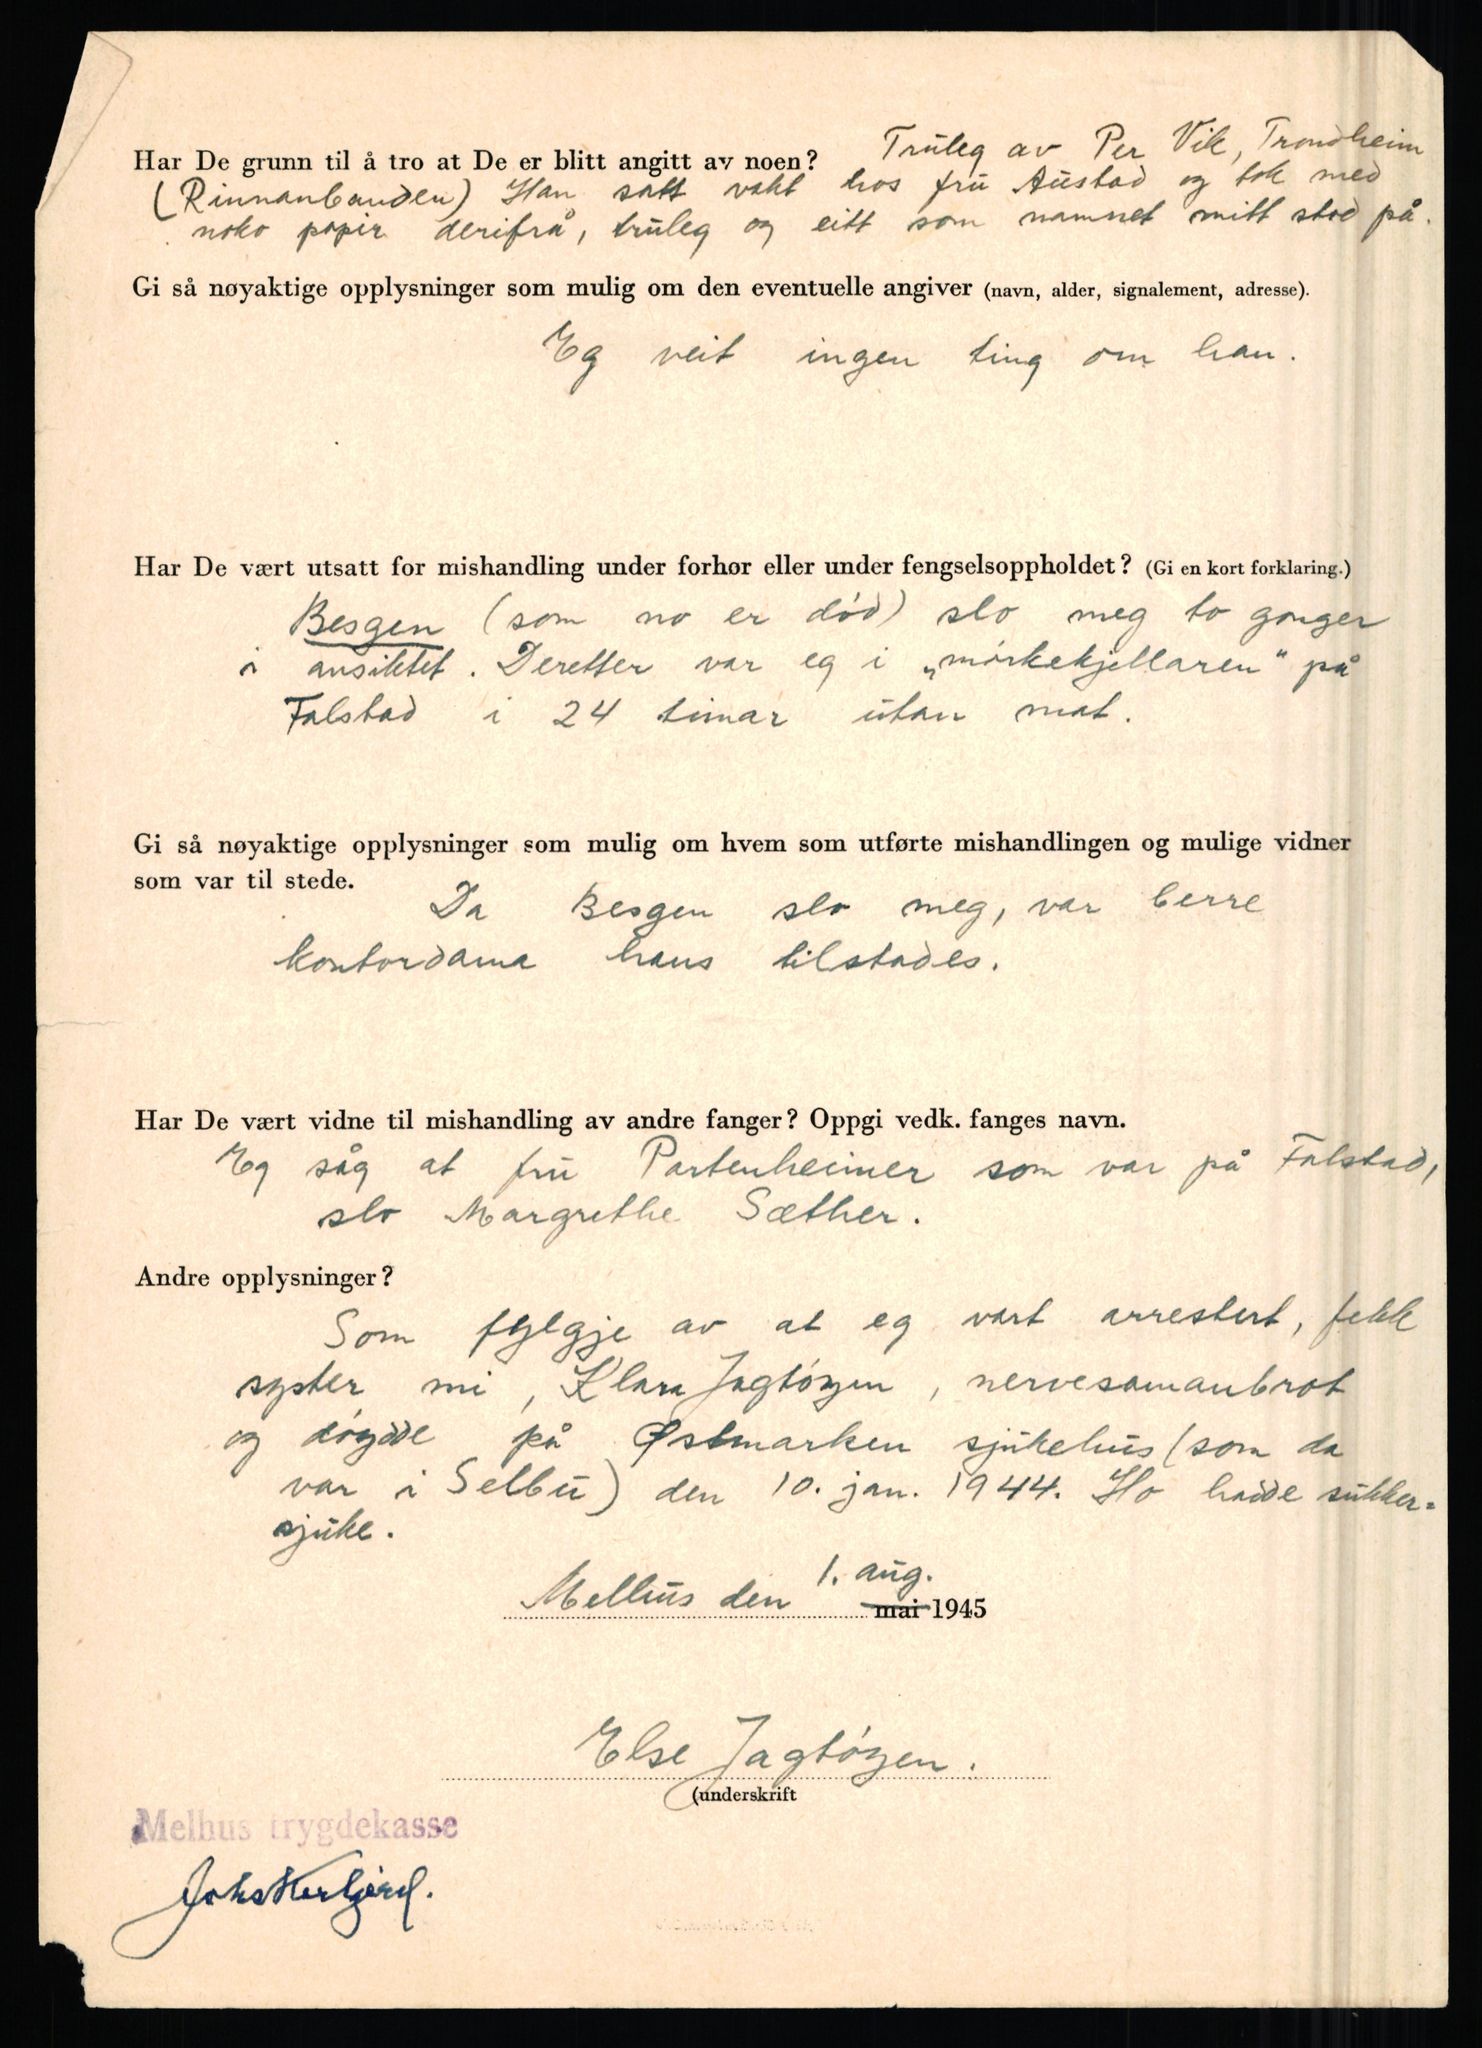 Har De grunn til å tro at De er blitt angitt av noen? Truleg av Per Vik, Trondheim
(Rinnanbanden) Han satt vakt hos fru Austad og tok med
noko papir derifrå, truleg og eitt som namnet mitt stod på.
Gi så nøyaktige opplysninger som mulig om den eventuelle angiver (navn, alder, signalement, adresse).
Eg veit ingen ting om han.
Har De vært utsatt for mishandling under forhør eller under fengselsoppholdet? (Gi en kort forklaring.)
Besgen (som no er død) slo meg to gonger
i ansiktet. Deretter var eg i „mørkekjellaren" på
Falstad i 24 timar utan mat.
Gi så nøyaktige opplysninger som mulig om hvem som utførte mishandlingen og mulige vidner
som var til stede.
Da Besgen slo meg, var berre
kontordama hans tilstades.
Har De vært vidne til mishandling av andre fanger? Oppgi vedk. fanges navn.
Eg såg at fru Partenheimer som var på Falstad,
slo Margrethe Sæther.
Andre opplysninger?
Som fylgje av at eg vart arrestert, fekk
syster mi, Klara Jagtøyen, nervesamanbrot
og døydde på Østmarken sjukehus (som da
var i Selbu) den 10. jan. 1944. Ho hadde sukker=
sjuke.
1. aug.
Melhus den mai 1945
Else Jagtøyen.
(underskrift
Melhus trygdekasse